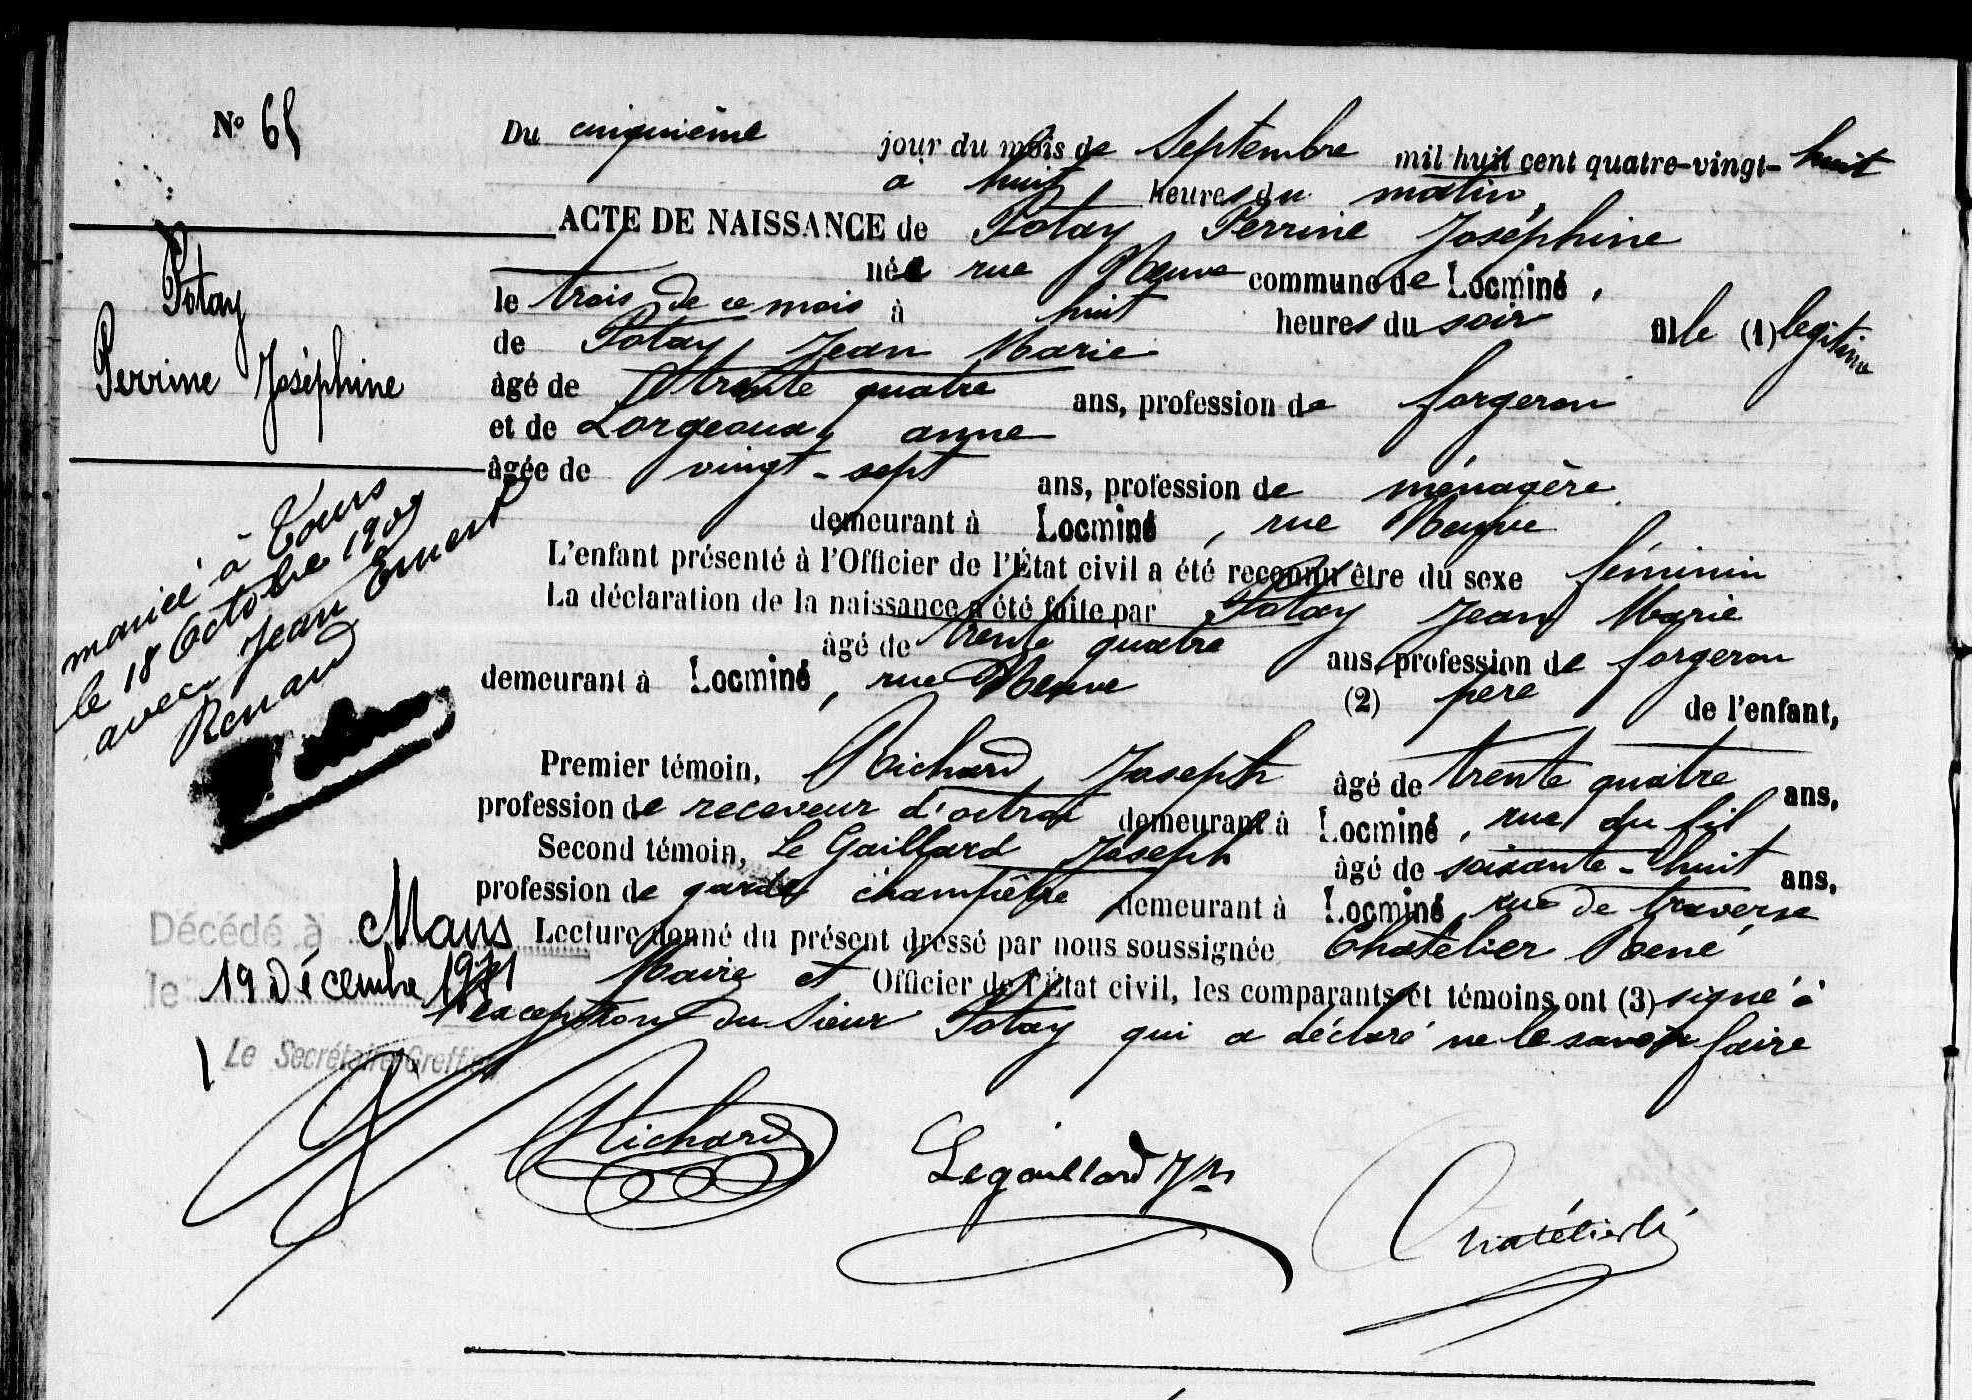 N° 65
Du cinquième jour du mois de Septembre mil huit cent quatre-vingt-huit
a huit heures du matin,
ACTE DE NAISSANCE de Potay Perrine Joséphine
née rue Neuve commune de Locminé,
le trois de ce mois à huit heures du soir fille (1) légitime
de Potay Jean Marie
âgé de trente quatre ans, profession de forgeron
et de Lorgeoux anne
âgée de vingt-sept ans, profession de ménagère
demeurant à Locminé, rue Neuve
L'enfant présenté à l'Officier de l'État civil a été reconnu être du sexe féminin
La déclaration de la naissance a été faite par Potay Jean Marie
âgé de trente quatre ans, profession de forgeron
demeurant à Locminé, rue Neuve (2) père de l'enfant,
Premier témoin, Richard Joseph âgé de trente quatre ans,
profession de receveur d'octroi demeurant à Locminé, rue du fil
Second témoin, Le Gaillard Joseph âgé de soixante-huit ans,
profession de garde champêtre demeurant à Locminé rue de traverse
Lecture donné du présent dressé par nous soussignée Chatelier René
Maire et Officier de l'État civil, les comparants et témoins ont (3) signé à
l'exception du Sieur Potay qui a déclaré ne le savoir faire
Richard
Legaillard Jh
Chatélier
Potay
Perrine Joséphine
marié à Tours
le 18 Octobre 1909
avec Jean Ernest
Renard
Décédé à Mans
le 19 Décembre
Le Secrétaire Greffier